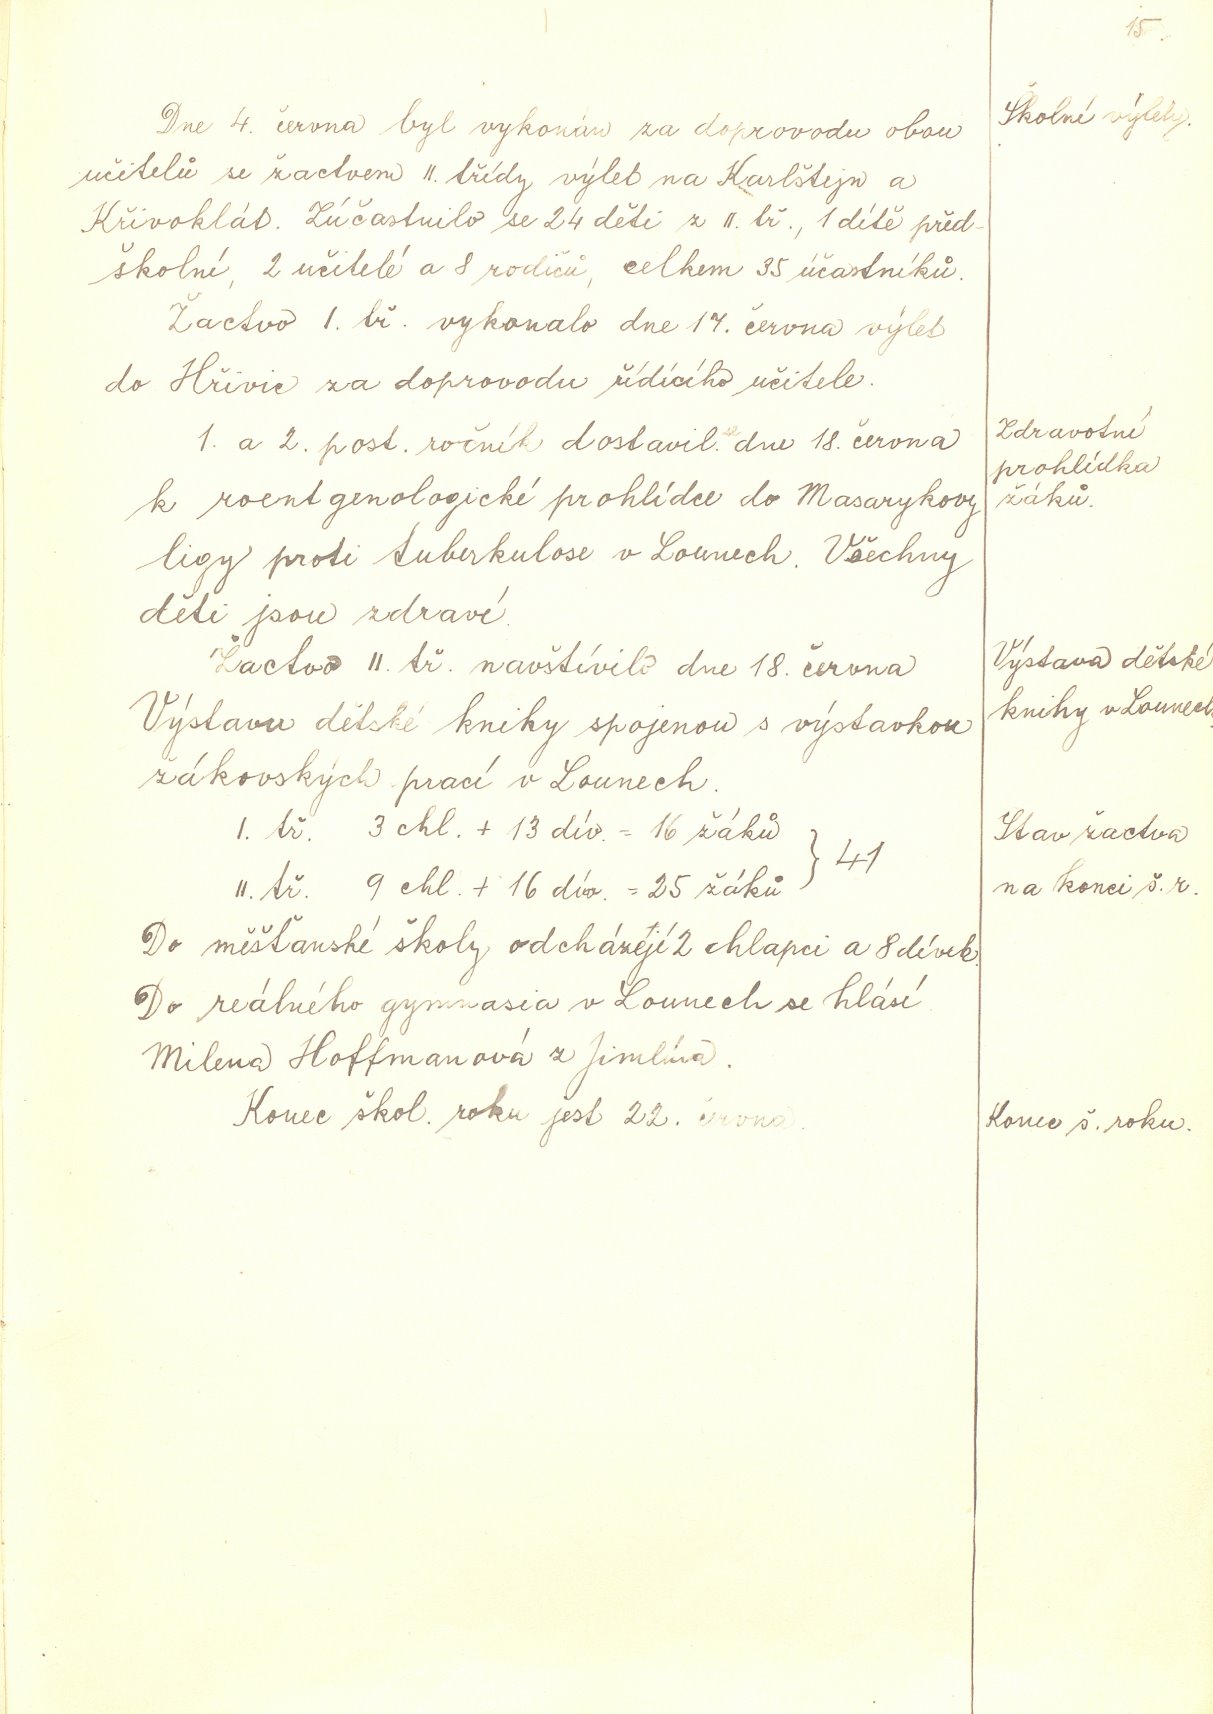 15.
Dne 4. června byl vykonán za doprovodu obou
učitelů se žactvem II. třídy výlet na Karlštejn a
Křivoklát. Zúčastnilo se 24 děti z II. tř., 1 dítě před-
školní, 2 učitelé a 8 rodičů, celkem 35 účastníků.
Žactvo I. tř. vykonalo dne 17. června výlet
do Hřivic za doprovodu řídícího učitele.
Školní výlety.
1. a 2. post. ročník dostavil. se dne 18. června
k roentgenologické prohlídce do Masarykovy
ligy proti tuberkulose v Lounech. Všechny
děti jsou zdravé.
Zdravotní
prohlídka
žáků.
Žactvo II. tř. navštívilo dne 18. června
Výstavu dětské knihy spojenou s výstavkou
žákovských prací v Lounech.
Výstava dětské
knihy v Lounech
I. tř. 3 chl. + 13 dív. = 16 žáků
II. tř. 9 chl. + 16 dív. = 25 žáků } 41
Stav žactva
na konci š. r.
Do měšťanské školy odcházejí 2 chlapci a 8 dívek.
Do reálného gymnasia v Lounech se hlásí
Milena Hoffmanová z Jimlína.
Konec škol. roku jest 22. června.
Konec š. roku.